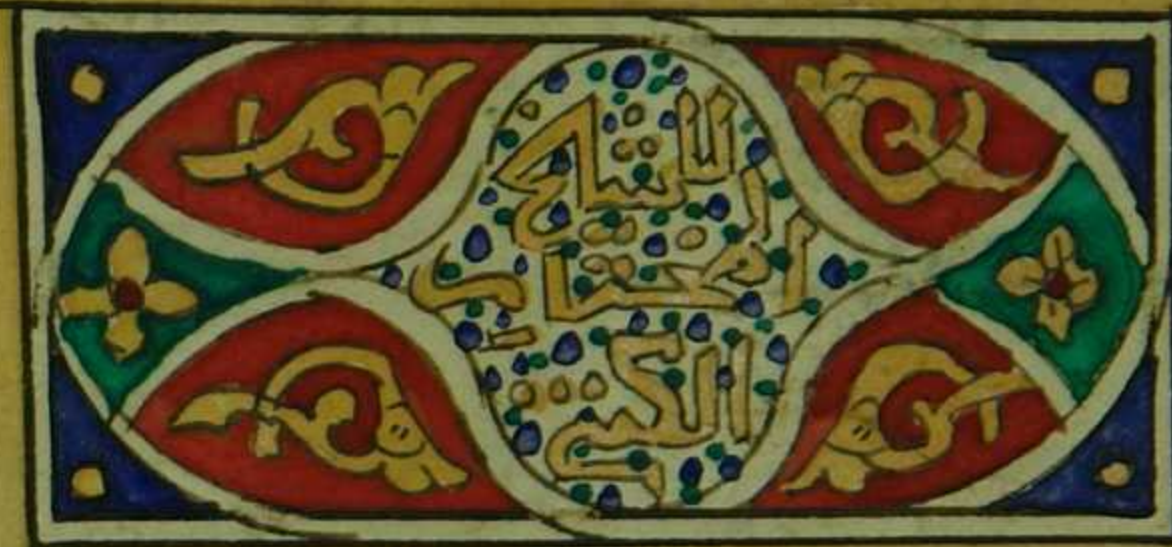 للشيخ
المختار
الكنتي